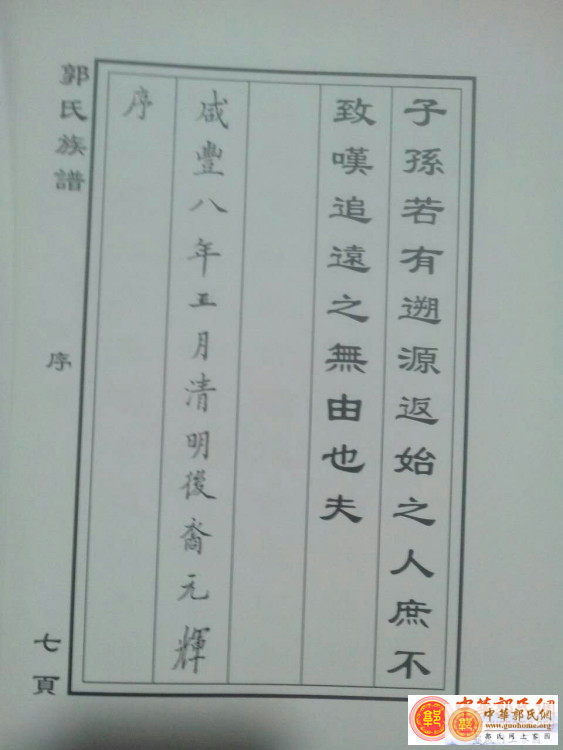 子孫若有遡源返始之人庶不
致嘆追遠之無由也夫
咸豐八年五月清明後裔元輝
序
郭氏族譜
序
七頁
中華郭氏網
中華郭氏網
www.guohome.org
郭氏网上家园